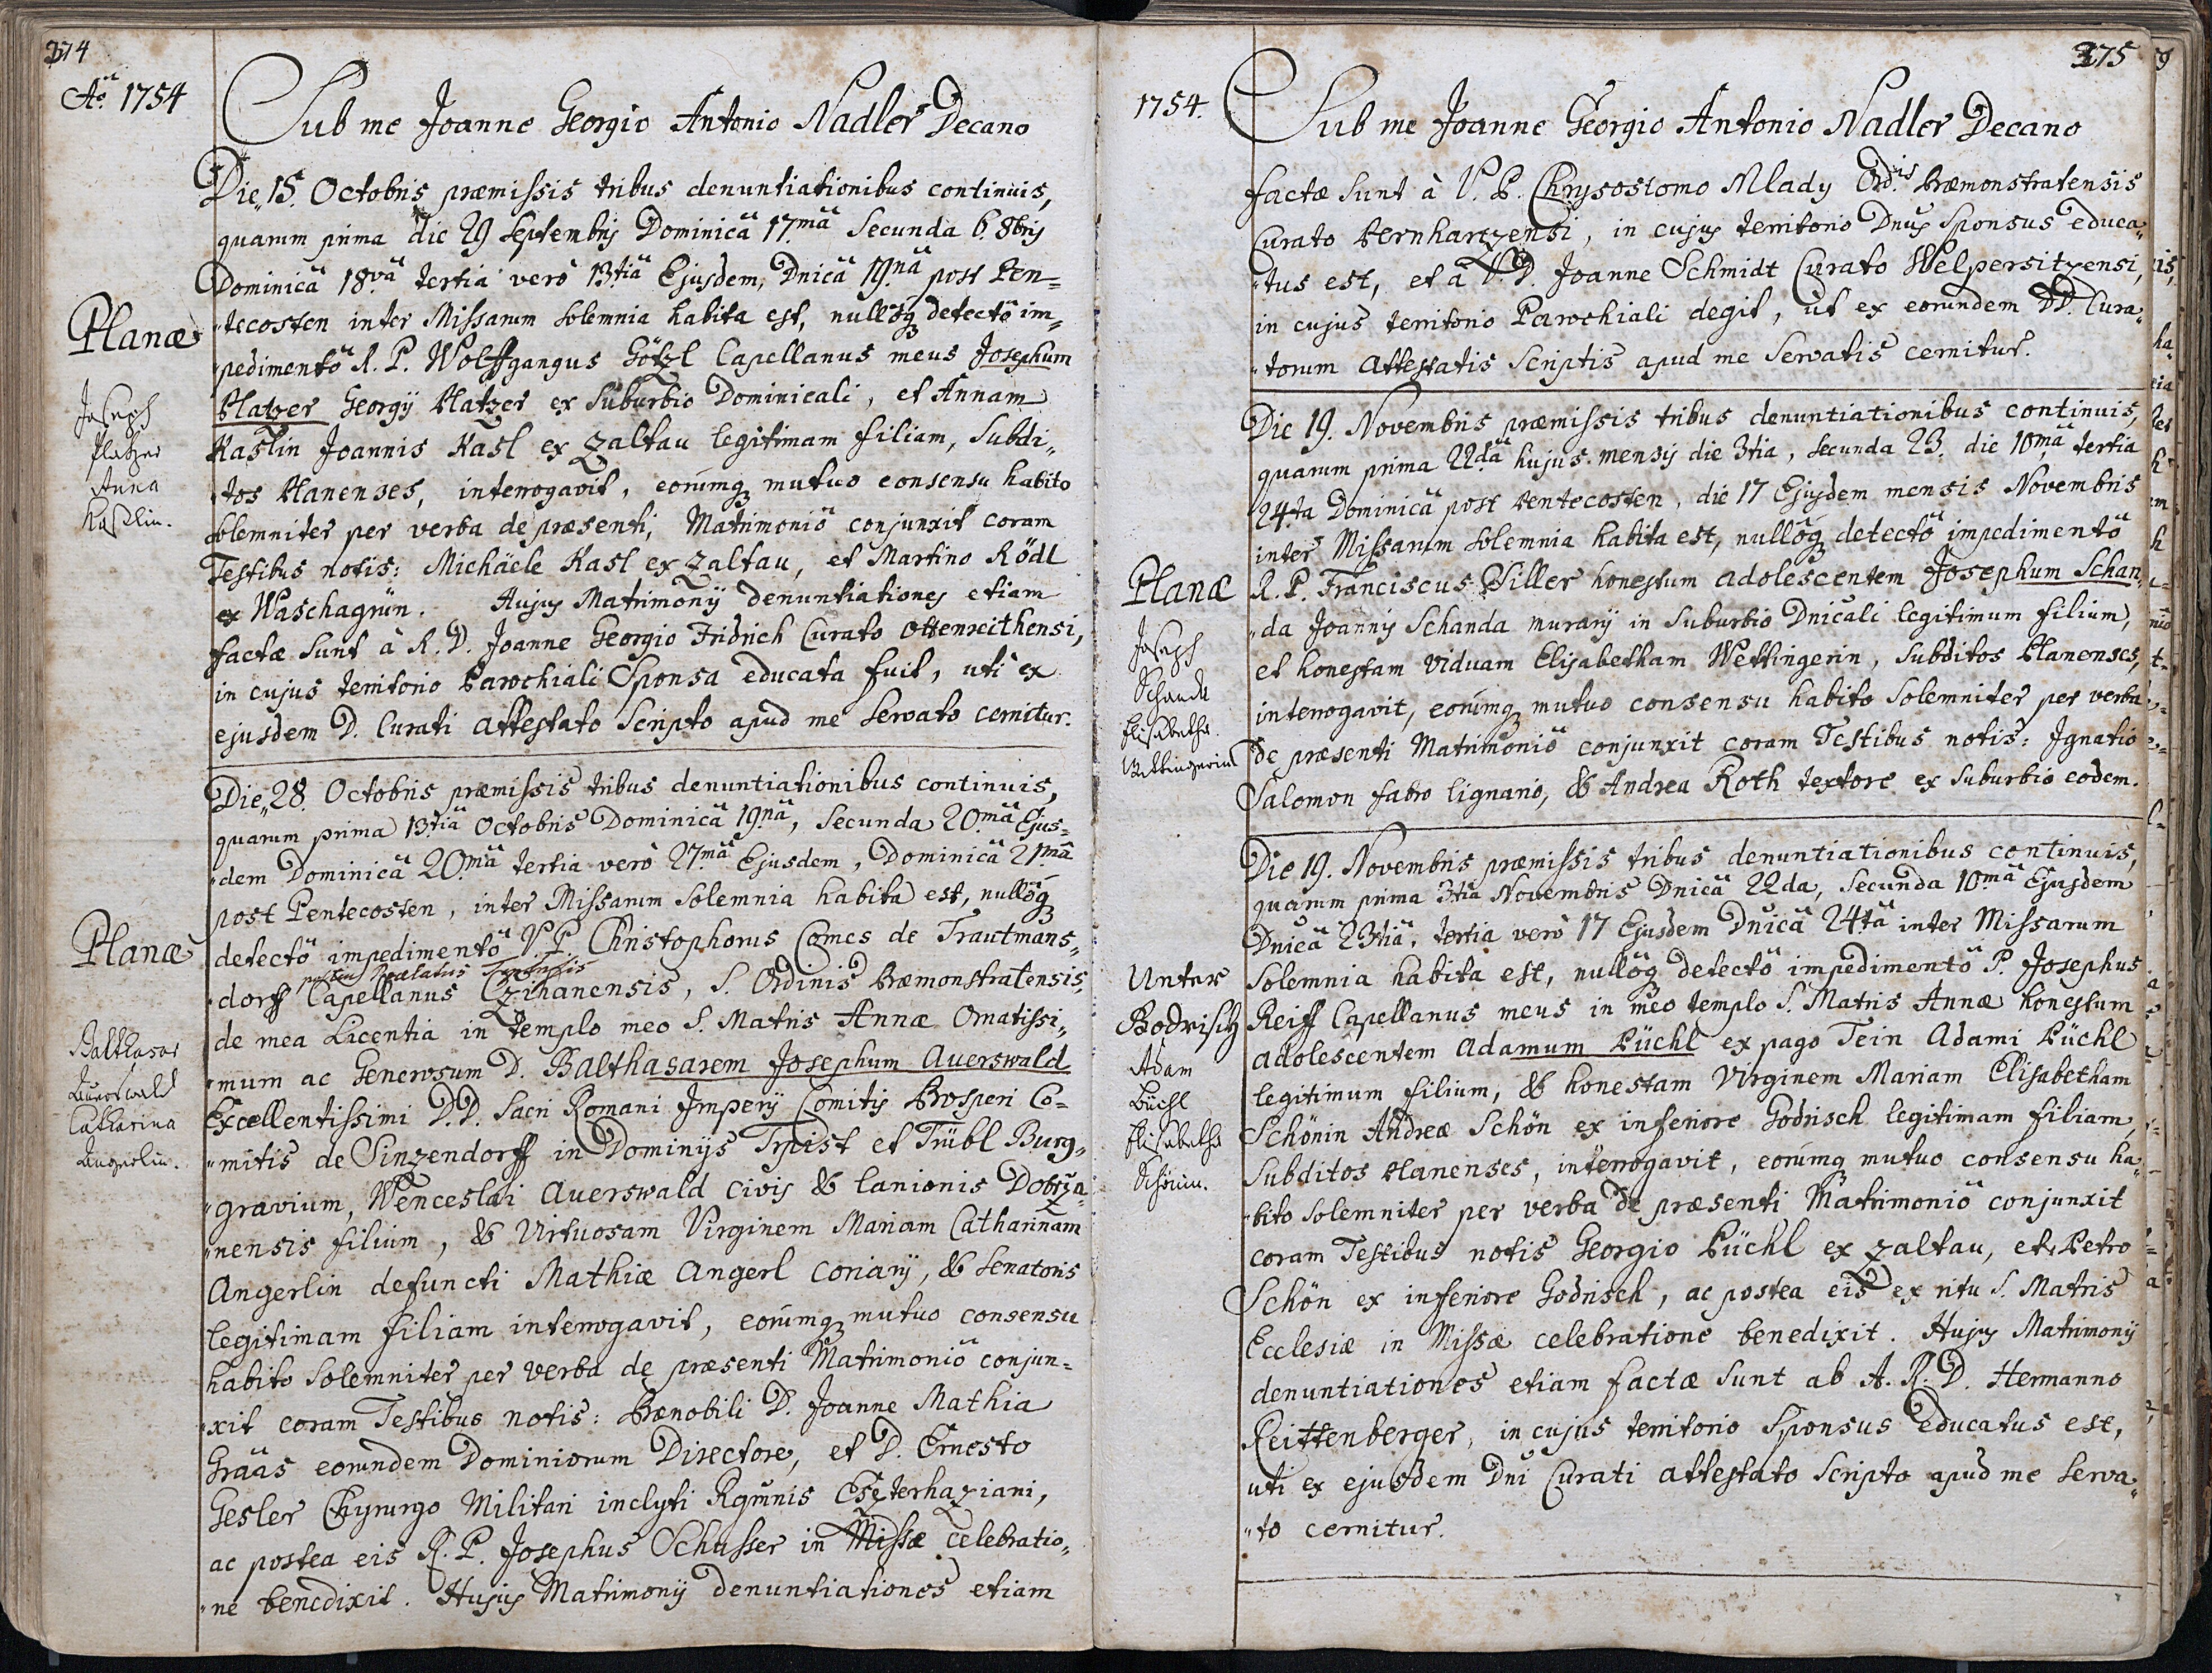 374
Aõ. 1754
Sub me Joanne Georgio Antonio Nadler Decano
Die 15. Octobris præmissis tribus denuntiationibus continuis,
quarum prima die 29 Septembris Dominicâ 17mâ Secunda 6. 8bris
Dominicâ 18vâ tertia verò 13tiâ Ejusdem, Dnicâ 19nâ post Pen=
tecosten inter Missarum solemnia habita est, nullõq detectõ im=
Planæ
pedimentõ R. P. Wolffgangus Götzl Capellanus meus Josephum
Platzer Georgij Platzer ex Suburbio Dominicali, et Annam
Joseph
Platzer
Anna
Kaßlin.
Kaslin Joannis Kasl ex Zaltau legitimam filiam, Subdi=
tos Planenses, interrogavit, eorumq mutuo consensu habito
solemniter per verba de præsenti, Matrimoniõ conjunxit coram
Testibus notis: Michäele Kasl ex Zaltau, et Martino Rödl
ex Waschagrün. Hujus Matrimonij denuntiationes etiam
factæ sunt à R. D. Joanne Georgio Fridrich Curato Ottenreithensi,
in cujus territorio Parochiali Sponsa educata fuit, uti ex
ejusdem D. Curati attestato Scripto apud me Servato cernitur.
Die 28. Octobris præmissis tribus denuntiationibus continuis,
quarum prima 13tiâ Octobris Dominicâ 19nâ, Secunda 20mâ Ejus=
dem Dominicâ 20mâ tertia verò 27mâ Ejusdem, Dominicâ 21mâ
post Pentecosten, inter Missarum Solemnia habita est, nullõq
Planæ
detectõ impedimentõ V. P. Christophorus Comes de Trautmans=
postea Prælatus Teplensis
dorff Capellanus Czihanensis, S. Ordinis Præmonstratensis,
de mea Licentia in templo meo S. Matris Annæ Ornatissi=
Balthasar
Auerswald
Catharina
Angerlin.
mum ac Generosum D. Balthasarem Josephum Auerswald
Excellentissimi D.D. Sacri Romani Imperij Comitis Prosperi Co=
mitis de Sinzendorff in Dominijs Trpist et Trübl Burg=
gravium, Wenceslai Auerswald civis & lanionis Dobrza=
nensis filium, & Virtuosam Virginem Mariam Catharinam
Angerlin defuncti Mathiæ Angerl coriarij, & Senatoris
legitimam filiam interrogavit, eorumq mutuo consensu
habito Solemniter per verba de præsenti Matrimoniõ conjun=
xit coram Testibus notis: Prænobili D. Joanne Mathia
Gräas eorundem Dominiorum Directore, et D. Ernesto
Gesler Chyrurgo Militari inclyti Rgminis Esterhaziani,
ac postea eis R. P. Josephus Schusser in Missæ celebratio=
ne benedixit. Hujus Matrimonij denuntiationes etiam
375
1754.
Sub me Joanne Georgio Antonio Nadler Decano
factæ Sunt à V. P. Chrysostomo Mlady Ordis Præmonstratensis
Curato Pernhartzensi, in cujus territorio Dnus Sponsus educa=
tus est, et à V. D. Joanne Schmidt Curato Welpersitzensi,
in cujus territorio Parochiali degit, ut ex eorundem DD. Cura=
torum Attestatis Scriptis apud me Servatis cernitur.
Die 19. Novembris præmissis tribus denuntiationibus continuis,
quarum prima 22dâ hujus mensis die 3tia, Secunda 23. die 10mâ tertia
24ta Dominicâ post Pentecosten, die 17 Ejusdem mensis Novembris
inter Missarum solemnia habita est, nullõq detectõ impedimentõ
Planæ
R. P. Franciscus Siller honestum adolescentem Josephum Schan=
da Joannis Schanda murarij in Suburbio Dnicali legitimum filium,
Joseph
Schanda
Elisabetha
Wettingerin
et honestam viduam Elisabetham Wettingerin, Subditos Planenses,
interrogavit, eorumq mutuo consensu habito Solemniter per verba
de præsenti Matrimoniõ conjunxit coram Testibus notis: Ignatio
Salomon fabro lignario, & Andrea Roth textore ex suburbio eodem.
Die 19. Novembris præmissis tribus denuntiationibus continuis,
quarum prima 3tiâ Novembris Dnicâ 22da, Secunda 10mâ Ejusdem
Dnicâ 23tiâ, tertia verò 17 Ejusdem Dnicâ 24tâ inter Missarum
Unter
Godrisch
Solemnia habita est, nullõq detectõ impedimentõ P. Josephus
Reiff Capellanus meus in meo templo S. Matris Annæ honestum
Adam
Püchl
Elisabetha
Schönin.
adolescentem Adamum Püchl ex pago Tein Adami Püchl
legitimum filium, & honestam Virginem Mariam Elisabetham
Schönin Andreæ Schön ex inferiore Godrisch legitimam filiam
Subditos Planenses, interrogavit, eorumq mutuo consensu ha=
bito Solemniter per verba de præsenti Matrimoniõ conjunxit
coram Testibus notis Georgio Püchl ex Zaltau, et Petro
Schön ex inferiore Godrisch, ac postea eis ex ritu S. Matris
Ecclesiæ in Missæ celebratione benedixit. Hujus Matrimonij
denuntiationes etiam factæ Sunt ab A. R. D. Hermanno
Reittenberger, in cujus territorio Sponsus educatus est,
uti ex ejusdem Dni Curati attestato Scripto apud me Serva=
to cernitur.